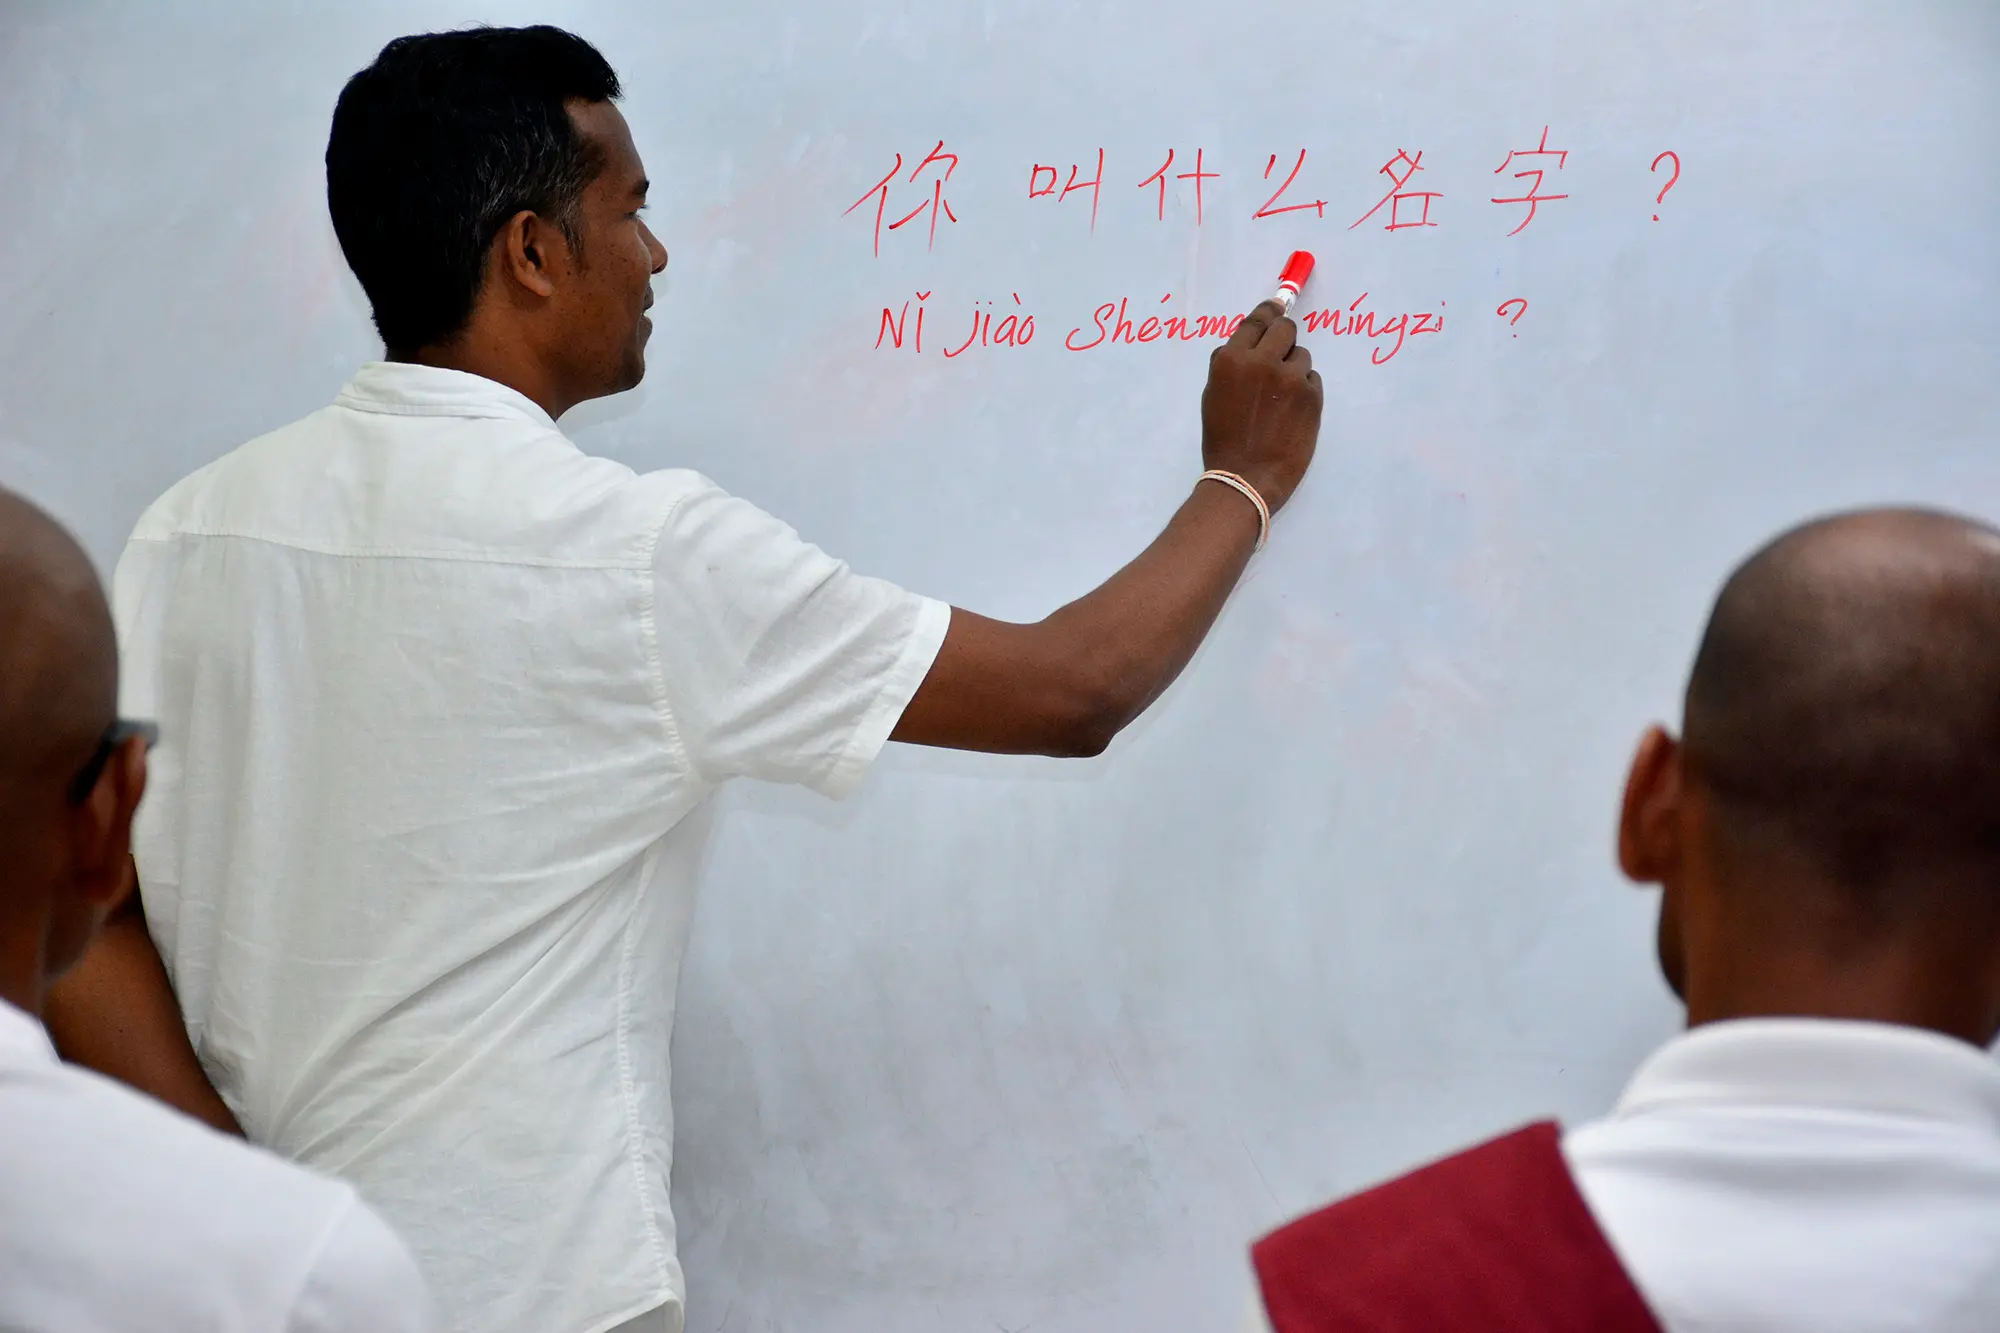 你叫什么名字?
Nǐ jiào Shénme míngzi ?